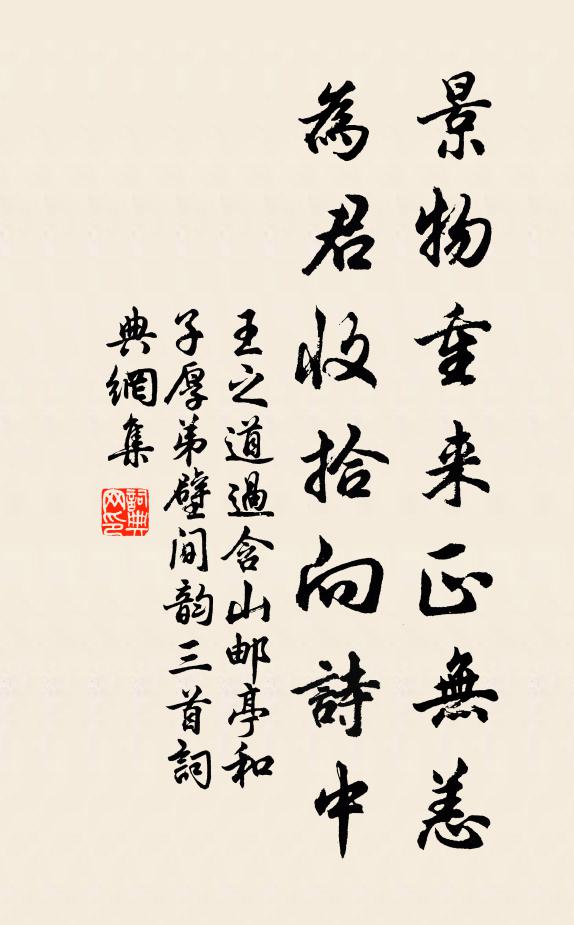 景物重来正無恙
為君收拾向詩中
王之道過含山邮亭和
子厚弟壁间韵三首詞
典網集
詞典网印